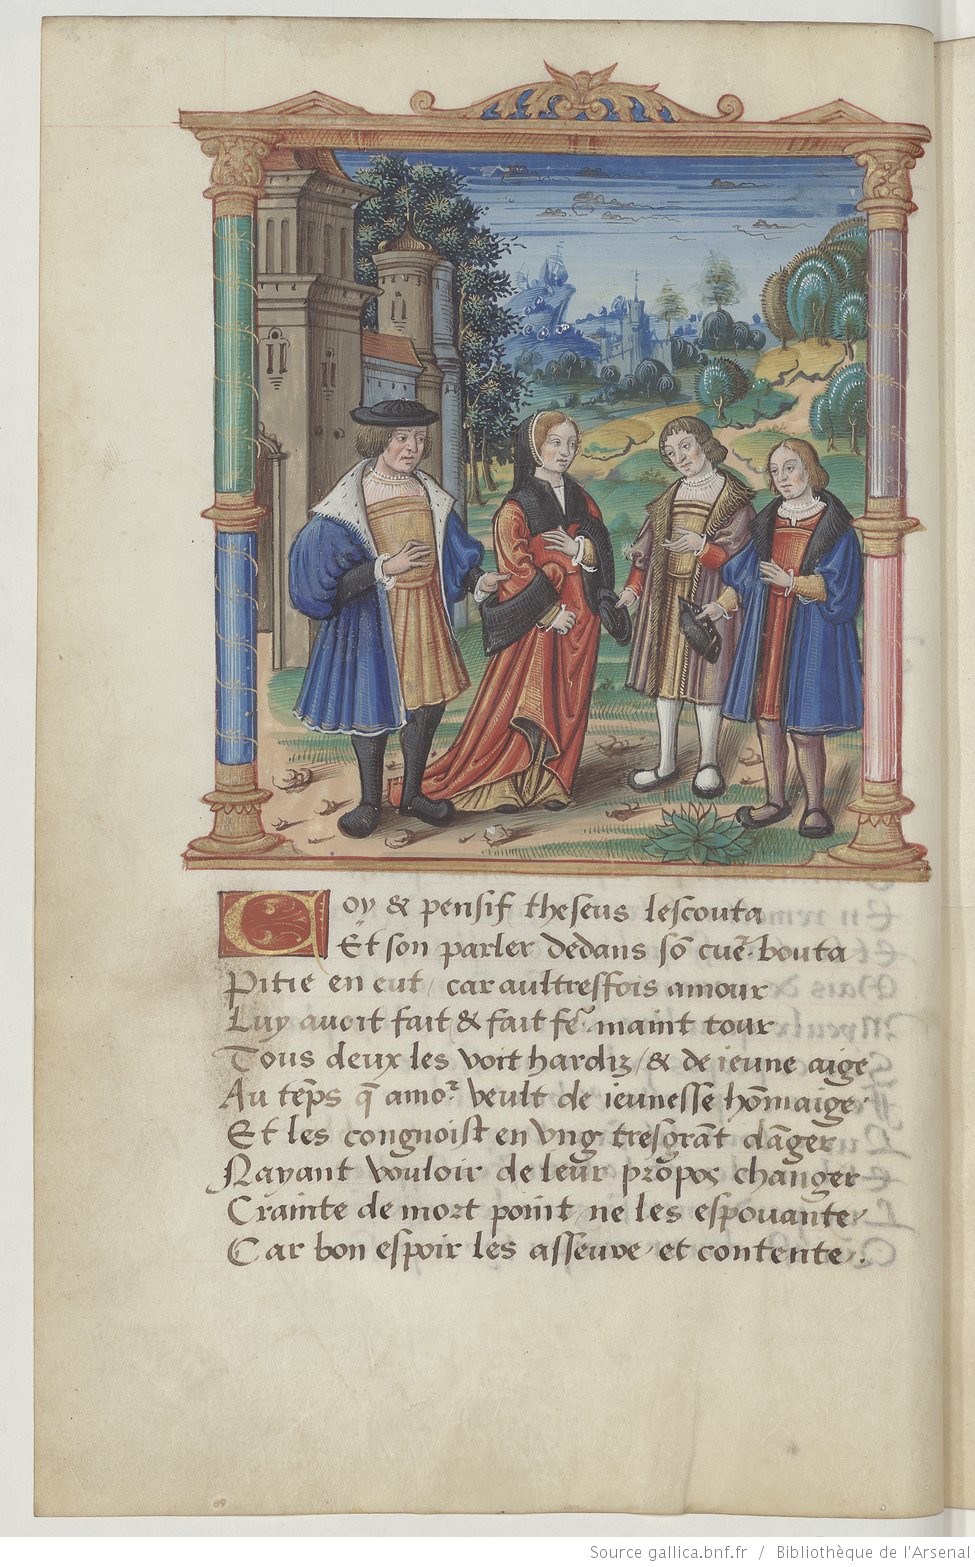 Coy & pensif theseus lescouta
Et son parler dedans sõ cuer bouta
Pitie en eut / car aultresfois amour
Luy auoit fait & fait fe maint tour
Tous deux les voit hardiz / & de ieune aige
Au tẽps q̃ amor veult de ieunesse hõmaige
Et les congnoist en vng tresgrãt dãger
Nayant vouloir de leur propos changer
Crainte de mort point ne les espouante
Car bon espoir les asseure et contente
Source gallica.bnf.fr / Bibliothèque de l'Arsenal